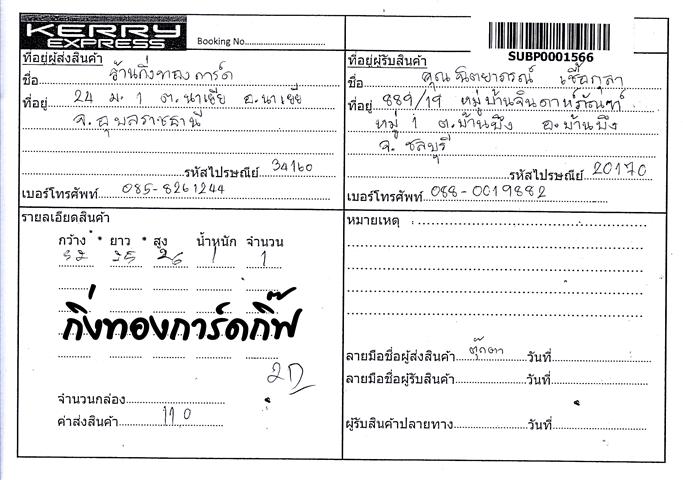 KERRY
EXPRESS
Booking No.
SUBP0001566
ที่อยู่ผู้ส่งสินค้า
ชื่อ ร้านกิ่งทองการ์ด
ที่อยู่ 24 ม.1 ต.นาเยีย อ.นาเยีย
จ.อุบลราชธานี
รหัสไปรษณีย์ 34160
เบอร์โทรศัพท์ 085-8261244
ที่อยู่ผู้รับสินค้า
ชื่อ คุณ
ที่อยู่ 889/19 หมู่บ้านจินดาห์ภัณฑ์
หมู่ 1 ต.บ้านบึง อ.บ้านบึง
จ. ชลบุรี
รหัสไปรษณีย์ 20170
เบอร์โทรศัพท์ 088-0019882
รายละเอียดสินค้า
กว้าง * ยาว * สูง น้ำหนัก จำนวน
26 1 1
กิ่งทองการ์ดกิ๊ฟ
2D
จำนวนกล่อง
ค่าส่งสินค้า 110
หมายเหตุ :
ลายมือชื่อผู้ส่งสินค้า ตุ๊กตา วันที่
ลายมือชื่อผู้รับสินค้า วันที่
ผู้รับสินค้าปลายทาง วันที่